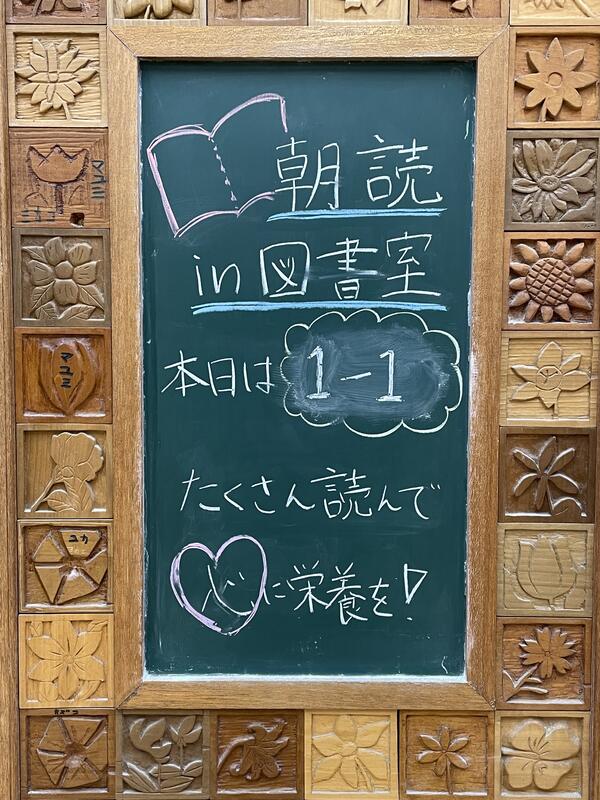 朝読
in図書室
本日は1-1
たくさん読んで
心に栄養を!
マユミ
ユカ